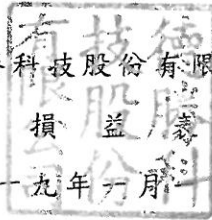 科技股份有限
損益表
九年一月
技股份
有限公司